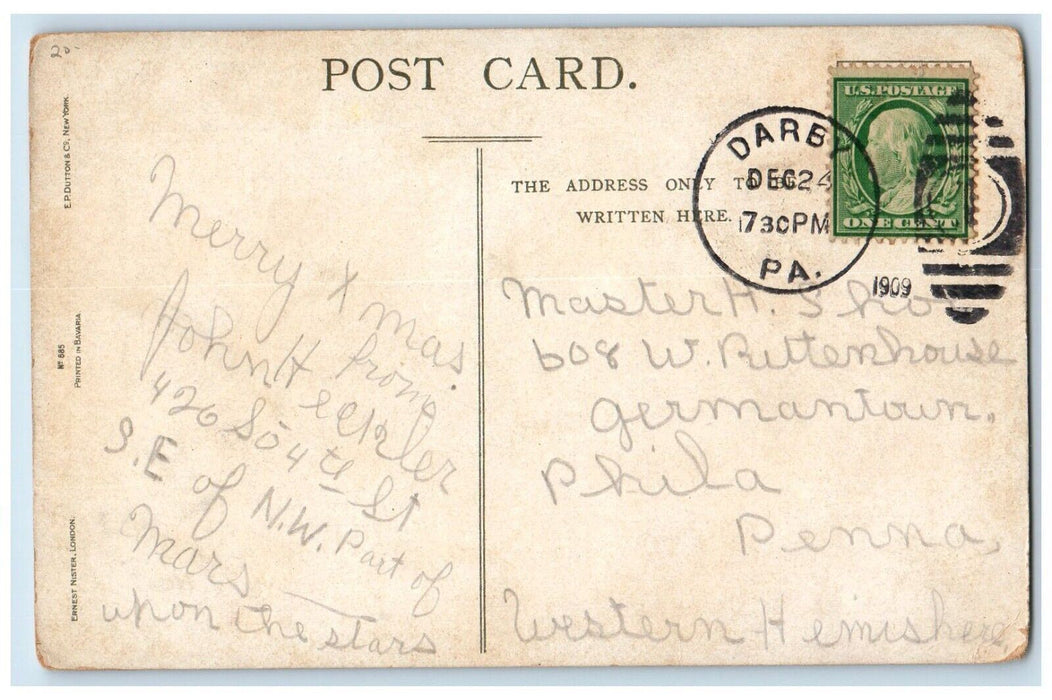 20.
POST CARD.
THE ADDRESS ONLY TO BE
WRITTEN HERE.
DARBY
DEC 24
730 PM
PA.
1909
U.S. POSTAGE
ONE CENT
E.P. DUTTON & Co, NEW YORK.
Nº 885
PRINTED IN BAVARIA.
ERNEST NISTER, LONDON.
Merry Xmas
from
John H
426 So 4th St
S.E of N.W. Part of
Mars
upon the stars
Master H.
608 W. Rittenhouse
Germantown.
Phila
Penna,
Western Hemishere